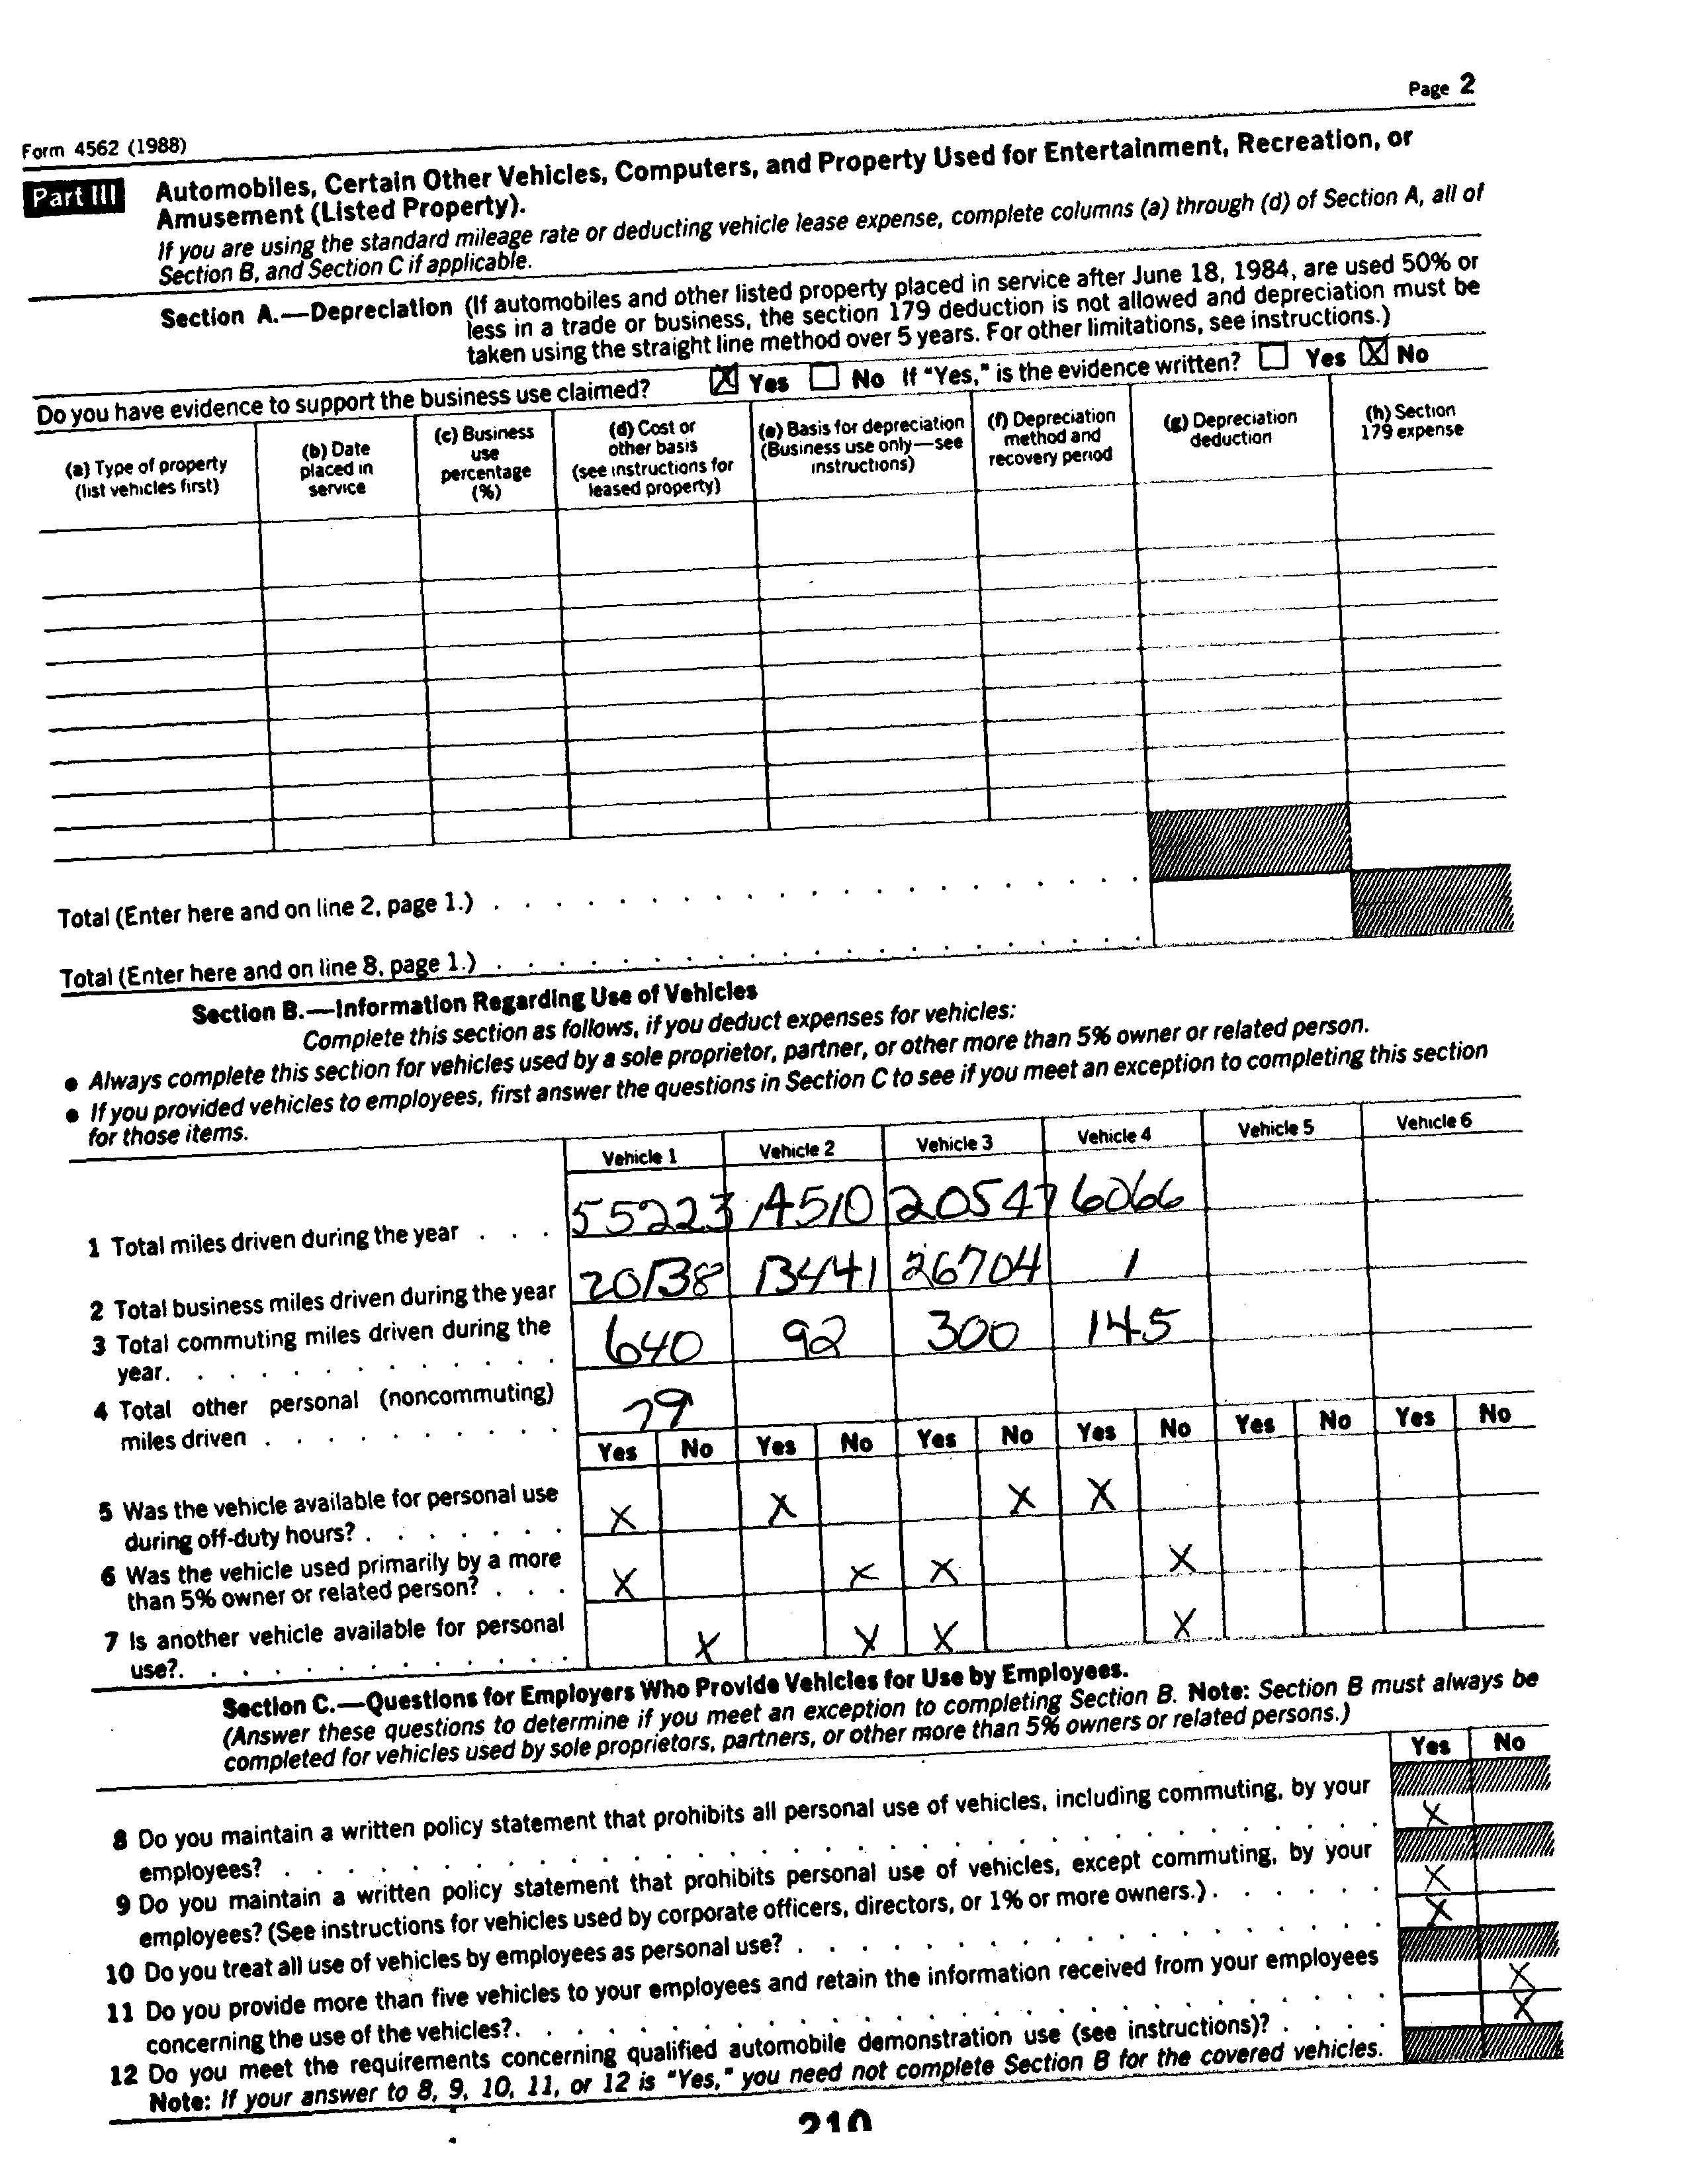 Page 2
Form 4562 (1988)
Part III Automobiles, Certain Other Vehicles, Computers, and Property Used for Entertainment, Recreation, or
Amusement (Listed Property).
If you are using the standard mileage rate or deducting vehicle lease expense, complete columns (a) through (d) of Section A, all of
Section B, and Section C if applicable.
Section A.—Depreciation (If automobiles and other listed property placed in service after June 18, 1984, are used 50% or
less in a trade or business, the section 179 deduction is not allowed and depreciation must be
taken using the straight line method over 5 years. For other limitations, see instructions.)
Do you have evidence to support the business use claimed? X Yes No If "Yes," is the evidence written? Yes X No
(a) Type of property
(list vehicles first)
(b) Date
placed in
service
(c) Business
use
percentage
(%)
(d) Cost or
other basis
(see instructions for
leased property)
(e) Basis for depreciation
(Business use only—see
instructions)
(f) Depreciation
method and
recovery period
(g) Depreciation
deduction
(h) Section
179 expense
Total (Enter here and on line 2, page 1.) . . . . . . . . . . . . . . . . . . . . .
Total (Enter here and on line 8, page 1.) . . . . . . . . . . . . . . . . . . . . .
Section B.—Information Regarding Use of Vehicles
Complete this section as follows, if you deduct expenses for vehicles:
● Always complete this section for vehicles used by a sole proprietor, partner, or other more than 5% owner or related person.
● If you provided vehicles to employees, first answer the questions in Section C to see if you meet an exception to completing this section
for those items.
Vehicle 1 Vehicle 2 Vehicle 3 Vehicle 4 Vehicle 5 Vehicle 6
1 Total miles driven during the year . . . 55223 14510 20547 6066
2 Total business miles driven during the year 20138 13441 26704 1
3 Total commuting miles driven during the
year. . . . . . . . . . . . 640 92 300 145
4 Total other personal (noncommuting)
miles driven . . . . . . . . . . 79
Yes No Yes No Yes No Yes No Yes No Yes No
5 Was the vehicle available for personal use
during off-duty hours? . . . . . . . X X X X
6 Was the vehicle used primarily by a more
than 5% owner or related person? . . . X X X X
7 Is another vehicle available for personal
use?. . . . . . . . . . . . . X X X X
Section C.—Questions for Employers Who Provide Vehicles for Use by Employees.
(Answer these questions to determine if you meet an exception to completing Section B. Note: Section B must always be
completed for vehicles used by sole proprietors, partners, or other more than 5% owners or related persons.)
Yes No
8 Do you maintain a written policy statement that prohibits all personal use of vehicles, including commuting, by your
employees? . . . . . . . . . . . . . . . . . . . . . . . . . . . . X
9 Do you maintain a written policy statement that prohibits personal use of vehicles, except commuting, by your
employees? (See instructions for vehicles used by corporate officers, directors, or 1% or more owners.) . . . . . . X
10 Do you treat all use of vehicles by employees as personal use? . . . . . . . . . . . . . . . . . . X
11 Do you provide more than five vehicles to your employees and retain the information received from your employees
concerning the use of the vehicles?. . . . . . . . . . . . . . . . . . . . . . . . . X
12 Do you meet the requirements concerning qualified automobile demonstration use (see instructions)? . . . . X
Note: If your answer to 8, 9, 10, 11, or 12 is "Yes," you need not complete Section B for the covered vehicles.
210